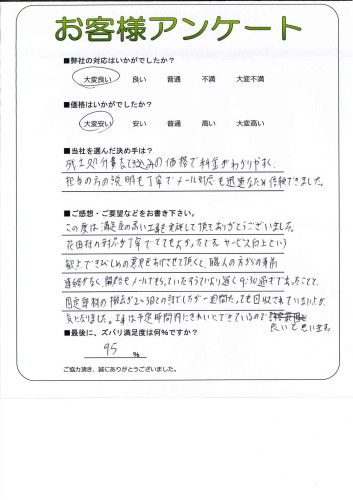 お客様アンケート
■弊社の対応はいかがでしたか?
大変良い 良い 普通 不満 大変不満
■価格はいかがでしたか?
大変安い 安い 普通 高い 大変高い
■当社を選んだ決め手は?
残土処分費まで込みの価格で料金がわかりやすく、
担当の方の説明も丁寧でメール対応も迅速なため信頼できました。
■ご感想・ご要望などをお書き下さい。
この度は満足度の高い工事を実施して頂きありがとうございました。
花田様の対応が丁寧でとてもよかったです。サービス向上という
観点できびしめの意見をあげさせて頂くと、職人の方からの事前
連絡がなく、開始をメールでもらっていたよりより遅く9:30過ぎであったことと、
固定資材の撤去が2~3日との話でしたが一週間たっても回収されていませんが、
気になりました。工事は予定時間内にきれいにできているので
良いと思います。
■最後に、ズバリ満足度は何%ですか?
95 %
ご協力頂き、誠にありがとうございました。